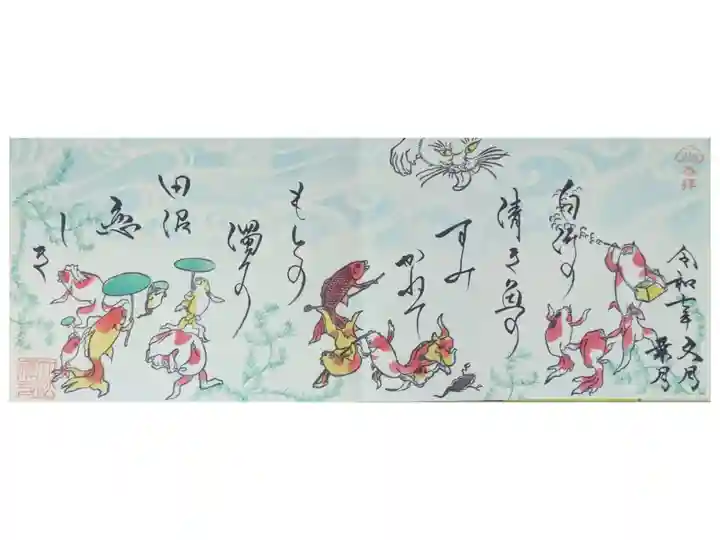 奉拝
令和七年文月
葉月
白河の
清き魚の
すみ
かねて
もとの
濁りの
田沼
恋
し
き